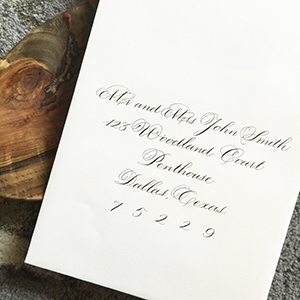 Mr and Mrs John Smith
123 Woodland Court
Penthouse
Dallas, Texas
75229